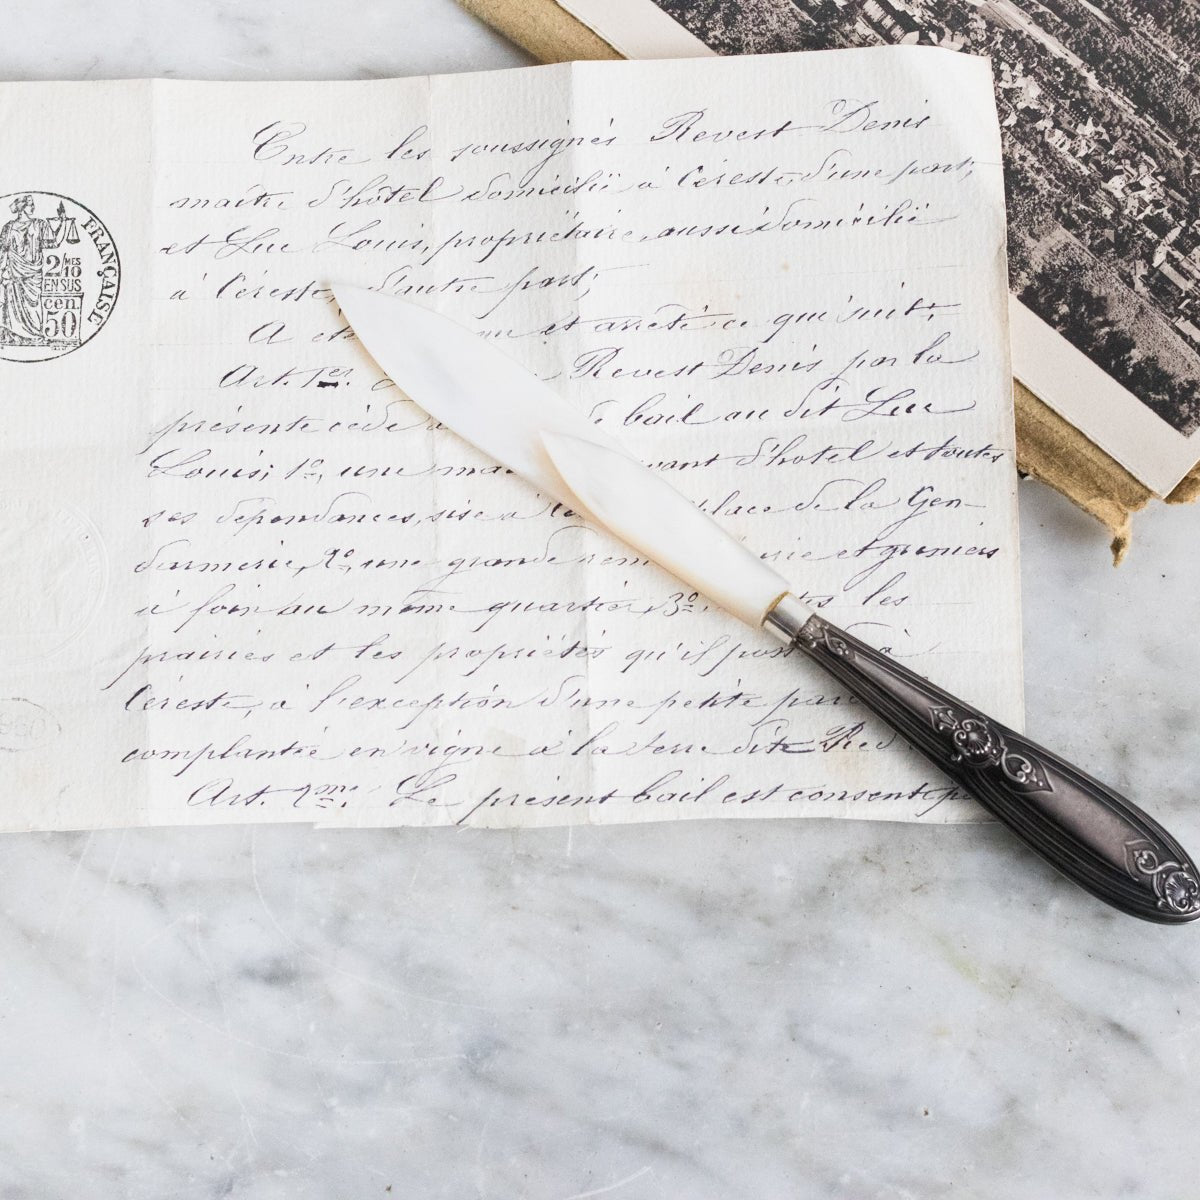 FRANÇAISE
2/10 MES
EN SUS
cen. 50
Entre les soussignés Revest Denis
maître d'hôtel domicilié à Céreste, d'une part,
et Luc Louis, propriétaire, aussi domicilié
à Céreste, d'autre part;
A et arrêté ce qui suit:
Art. 1er. Revest Denis par la
présente cède bail au dit Luc
Louis; 1º, une d'hotel et toutes
ses dépendances, sise à place de la Gen-
darmerie, 2º, une grande et greniers
à foin au même quartier, 3º, les
prairies et les propriétés qu'il à
Céreste, à l'exception d'une petite
complantée en vigne à la terre dite
Art. 2me. Le présent bail est consenti